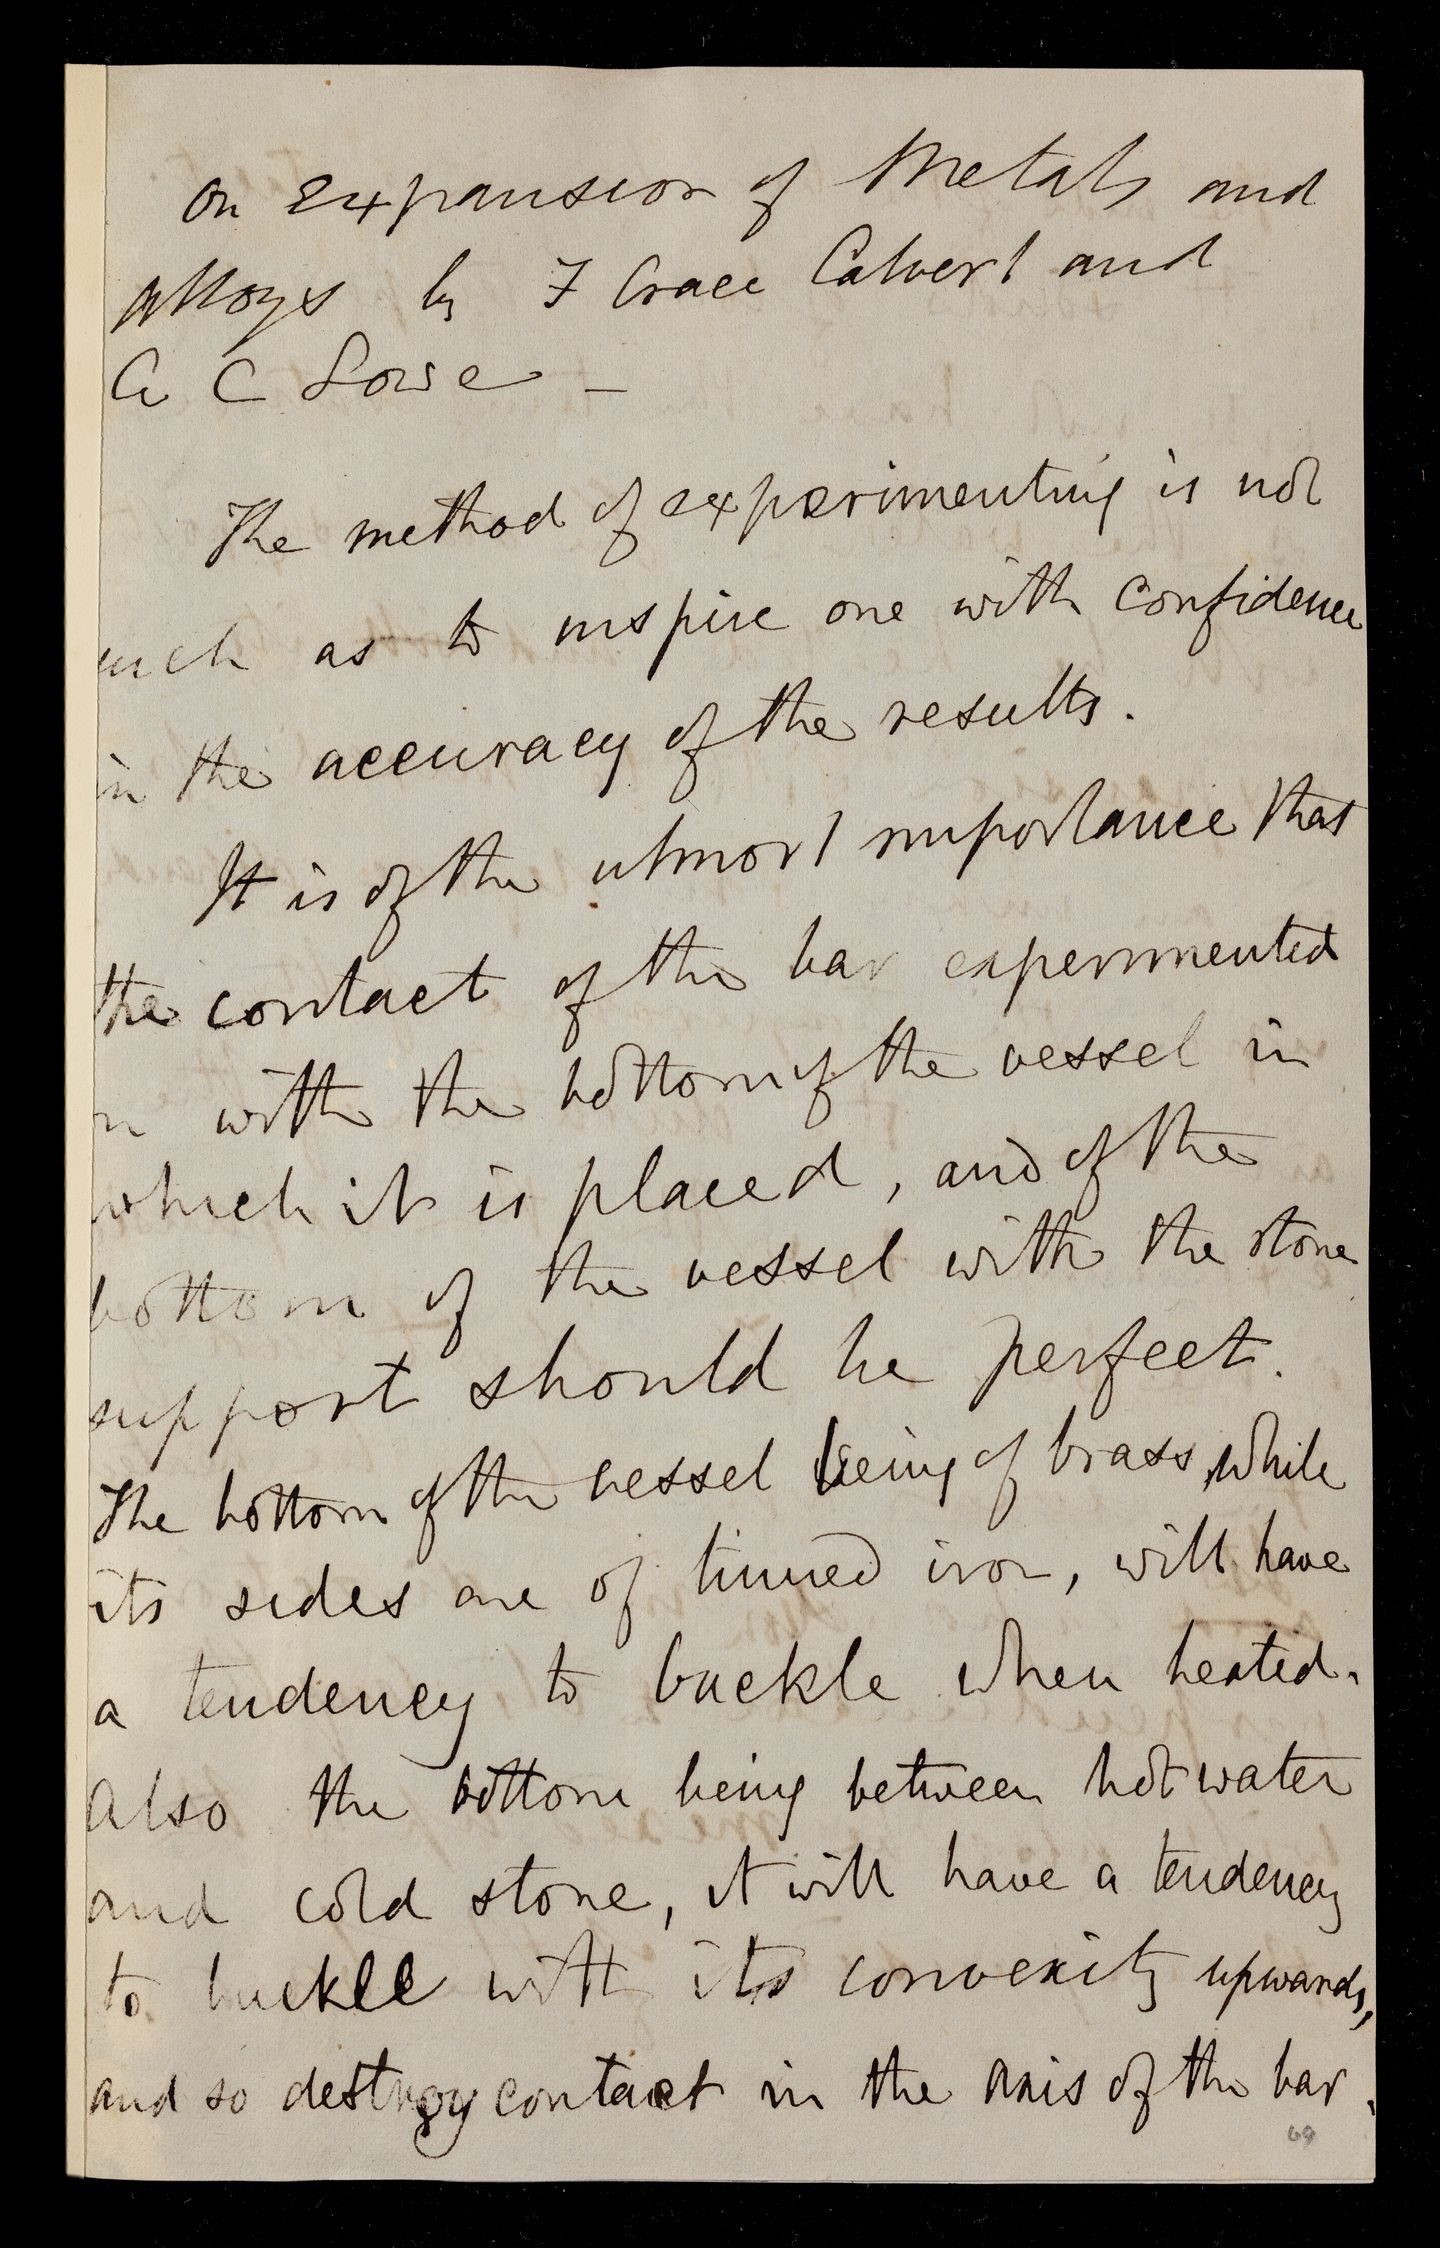 On Expansion of Metals and
Alloys by F Crace Calvert and
G C Lowe –
The method of experimenting is not
such as to inspire one with confidence
in the accuracy of the results.
It is of the utmost importance that
the contact of the bar experimented
on with the bottom of the vessel in
which it is placed, and of the
bottom of the vessel with the stone
support should be perfect.
The bottom of the vessel being of brass, while
its sides are of tinned iron, will have
a tendency to buckle when heated.
Also the bottom being between hot water
and cold stone, it will have a tendency
to buckle with its convexity upwards,
and so destroy contact in the axis of the bar.
69